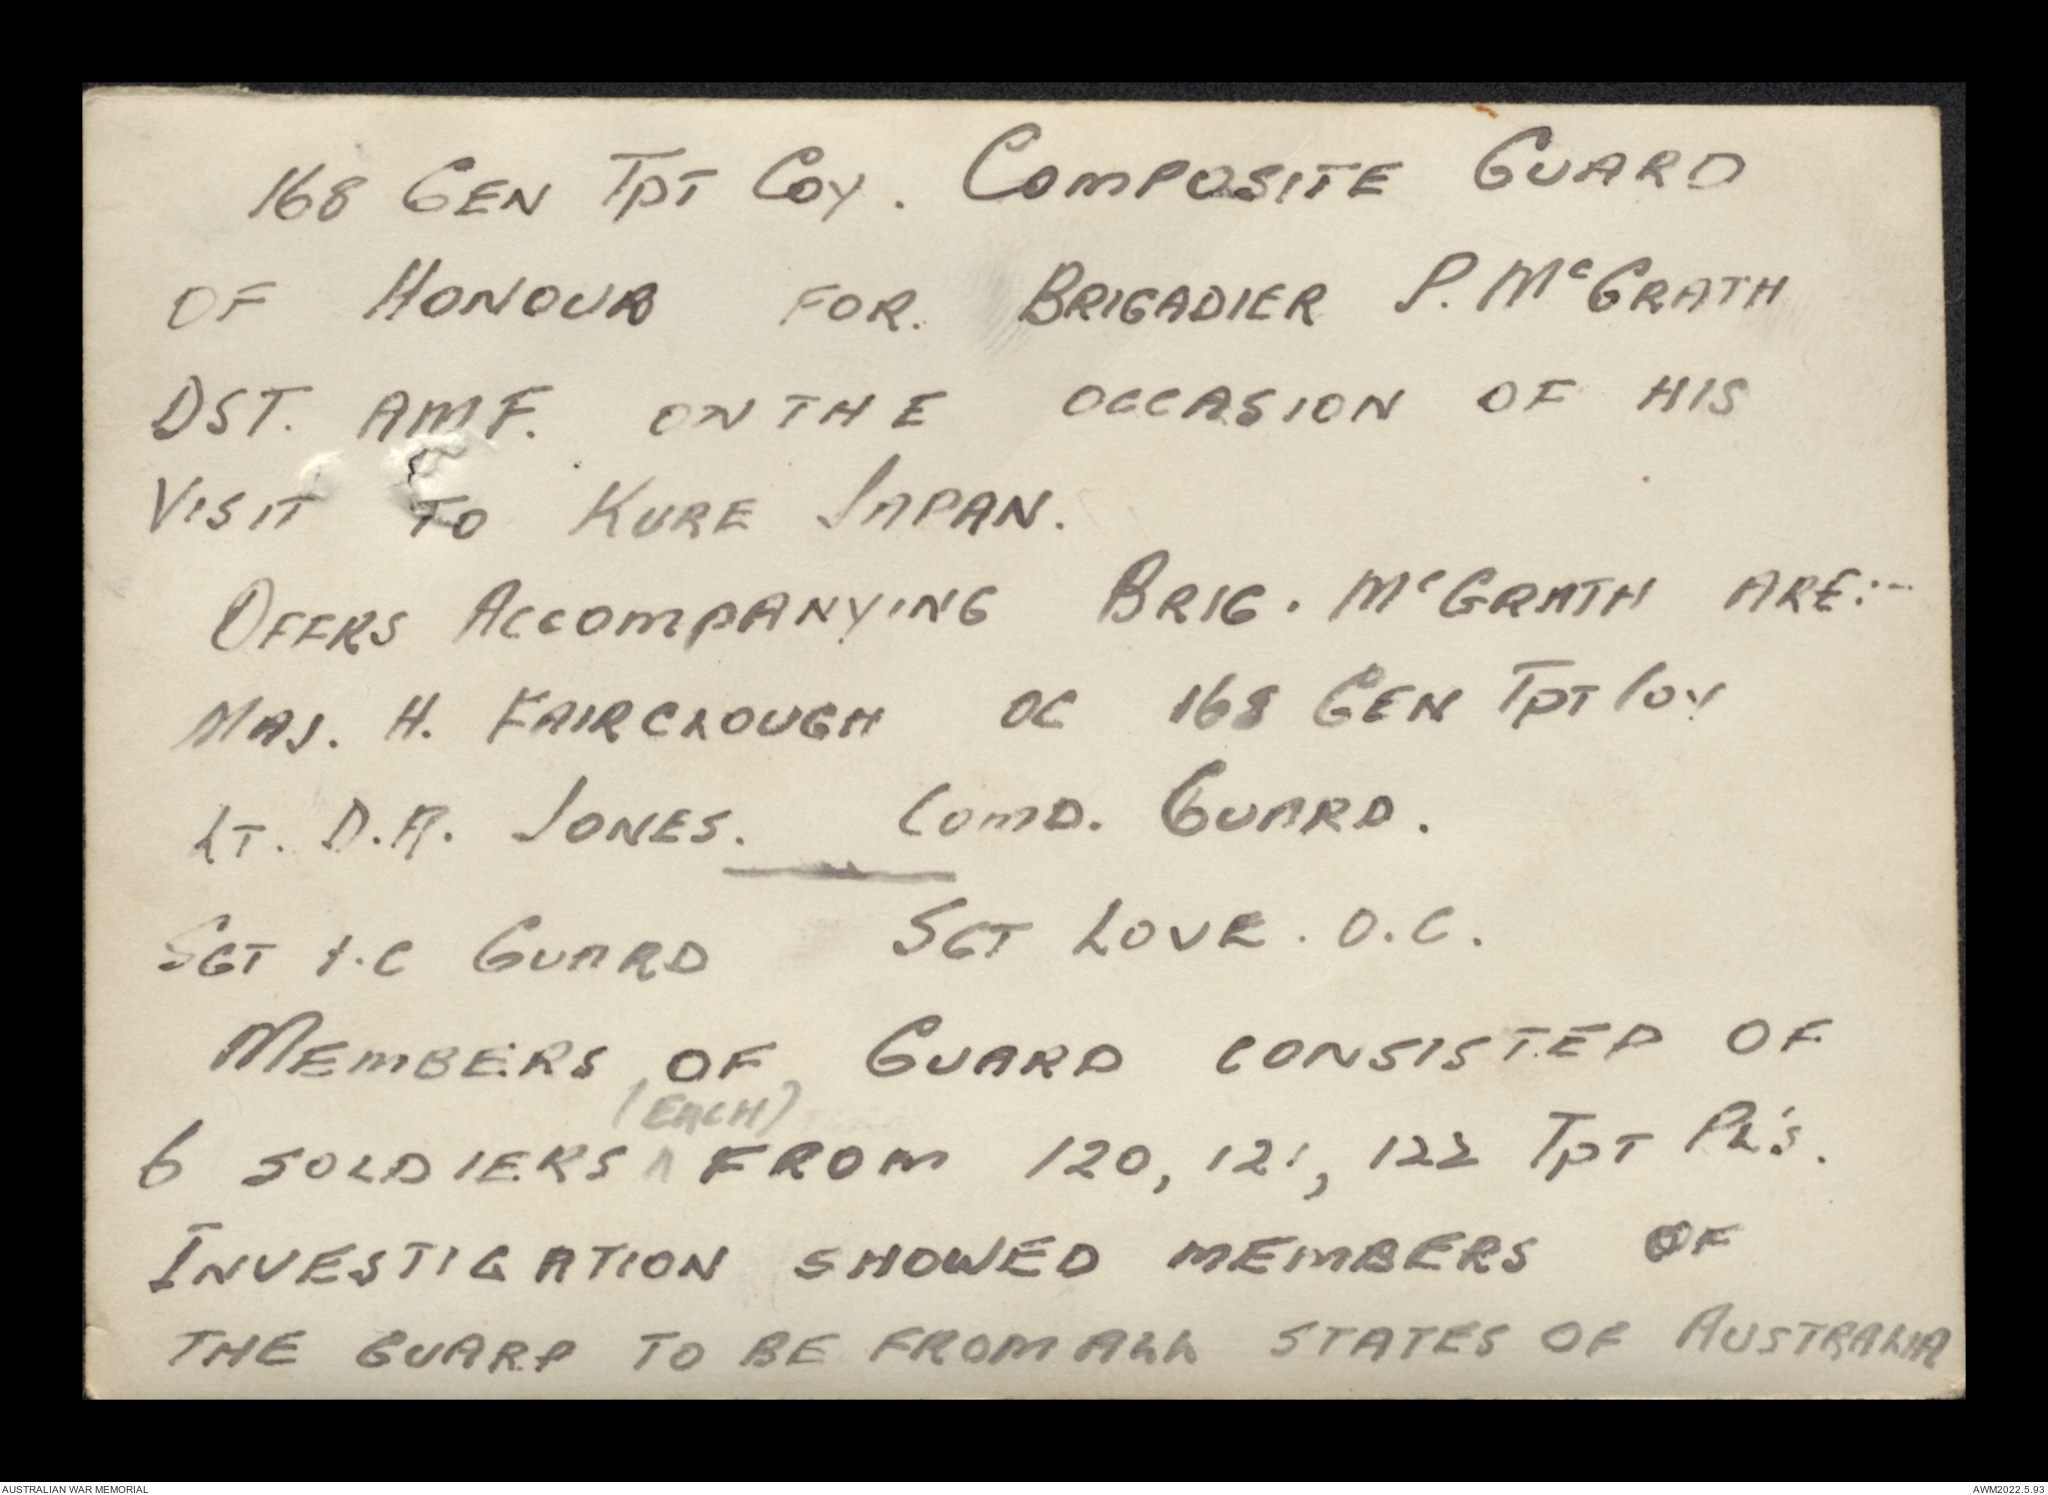 168 GEN TPT COY. COMPOSITE GUARD
OF HONOUR FOR. BRIGADIER P. McGRATH
DST. AMF. ON THE OCCASION OF HIS
VISIT TO KURE JAPAN.
OFFRS ACCOMPANYING BRIG. McGRATH ARE:-
MAJ. H. FAIRCLOUGH OC 168 GEN TPT COY
LT. D.R. JONES. COMD. GUARD.
SGT I.C GUARD SGT LOVE. O.C.
MEMBERS OF GUARD CONSISTED OF
(EACH)
6 SOLDIERS ^ FROM 120, 121, 122 TPT PL'S.
INVESTIGATION SHOWED MEMBERS OF
THE GUARD TO BE FROM ALL STATES OF AUSTRALIA
AUSTRALIAN WAR MEMORIAL AWM2022.5.93